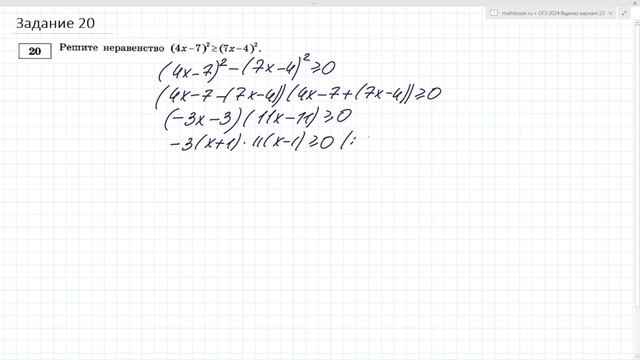 mathlesson.ru > ОГЭ 2024 Ященко вариант 23
Задание 20
20 Решите неравенство (4x−7)²≥(7x−4)².
(4x−7)²−(7x−4)²≥0
(4x−7−(7x−4))(4x−7+(7x−4))≥0
(−3x−3)(11x−11)≥0
−3(x+1)·11(x−1)≥0 (: